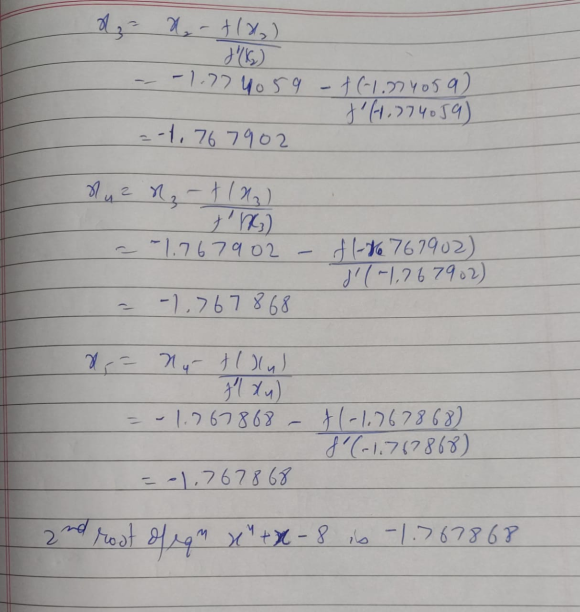 x₃ = x₂ - f(x₂)
f'(x₂)
= -1.774059 - f(-1.774059)
f'(-1.774059)
= -1.767902
x₄ = x₃ - f(x₃)
f'(x₃)
= -1.767902 - f(-1.767902)
f'(-1.767902)
= -1.767868
x₅ = x₄ - f(x₄)
f'(x₄)
= -1.767868 - f(-1.767868)
f'(-1.767868)
= -1.767868
2ⁿᵈ root of eqⁿ x⁴+x-8 is -1.767868